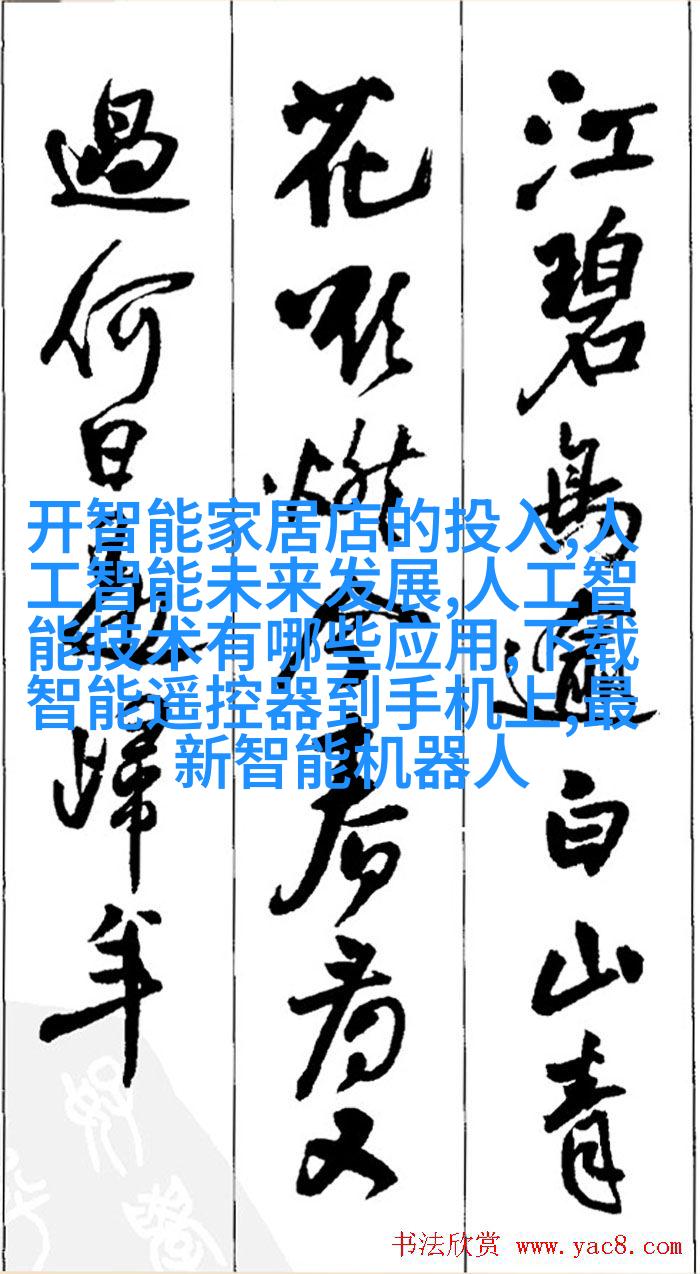 江碧鳥逾白山青
花欲燃今春看又
過何日是歸年
开智能家居店的投入,人
工智能未来发展,人工智
能技术有哪些应用,下载
智能遥控器到手机上,最
新智能机器人
书法欣赏 www.yac8.com